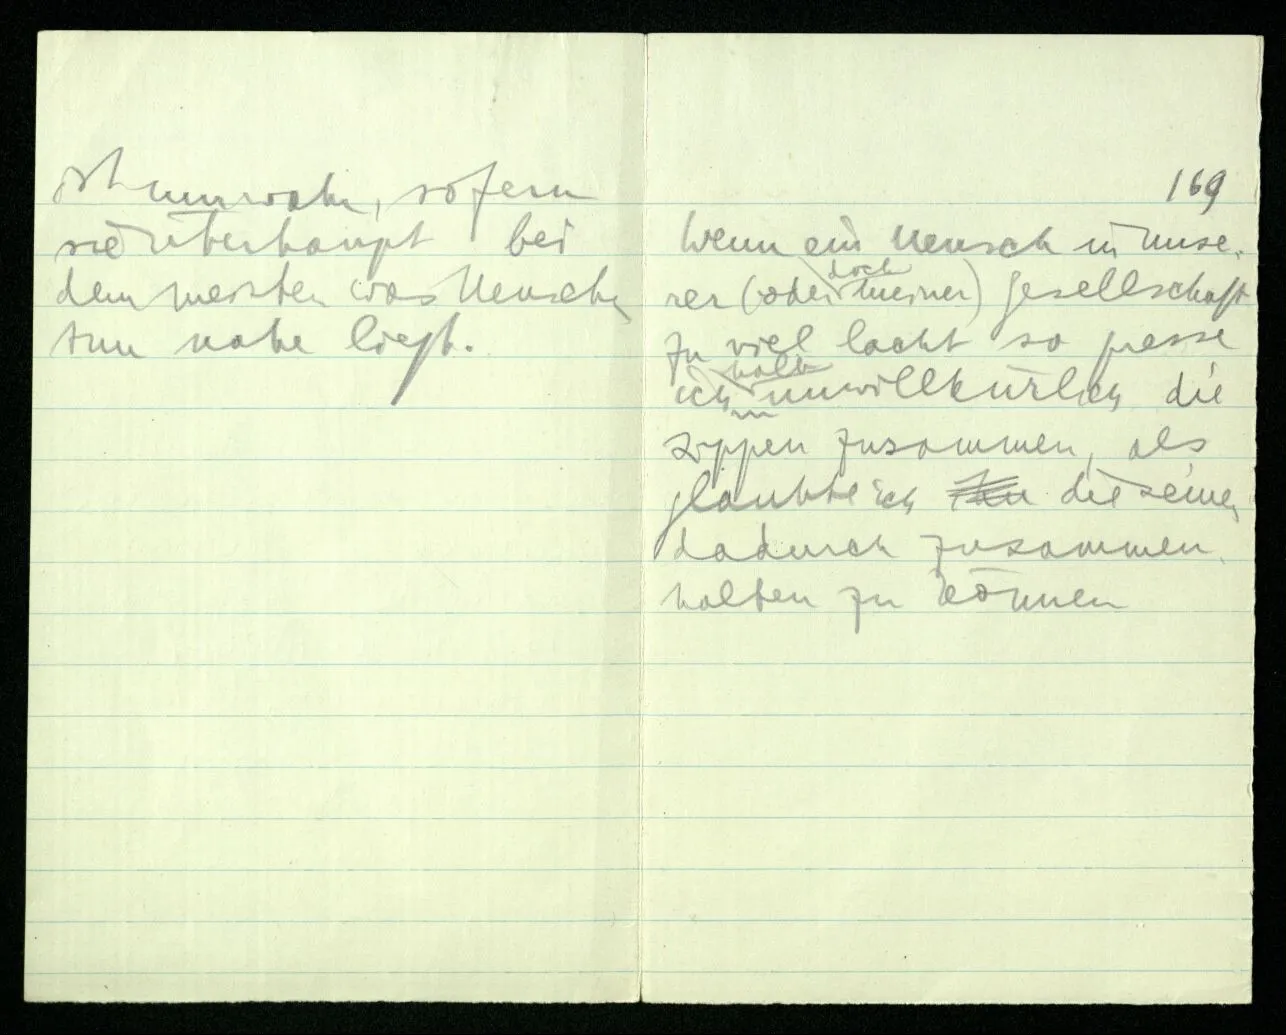 ist unwahr, sofern
sie überhaupt bei
dem meisten was Menschen
tun nahe liegt.
169
Wenn ein Mensch in unse-
rer (oder doch meiner) Gesellschaft
zu viel lacht so presse
ich halb unwillkürlich die
Lippen zusammen, als
glaubte ich die seinen
dadurch zusammen
halten zu können